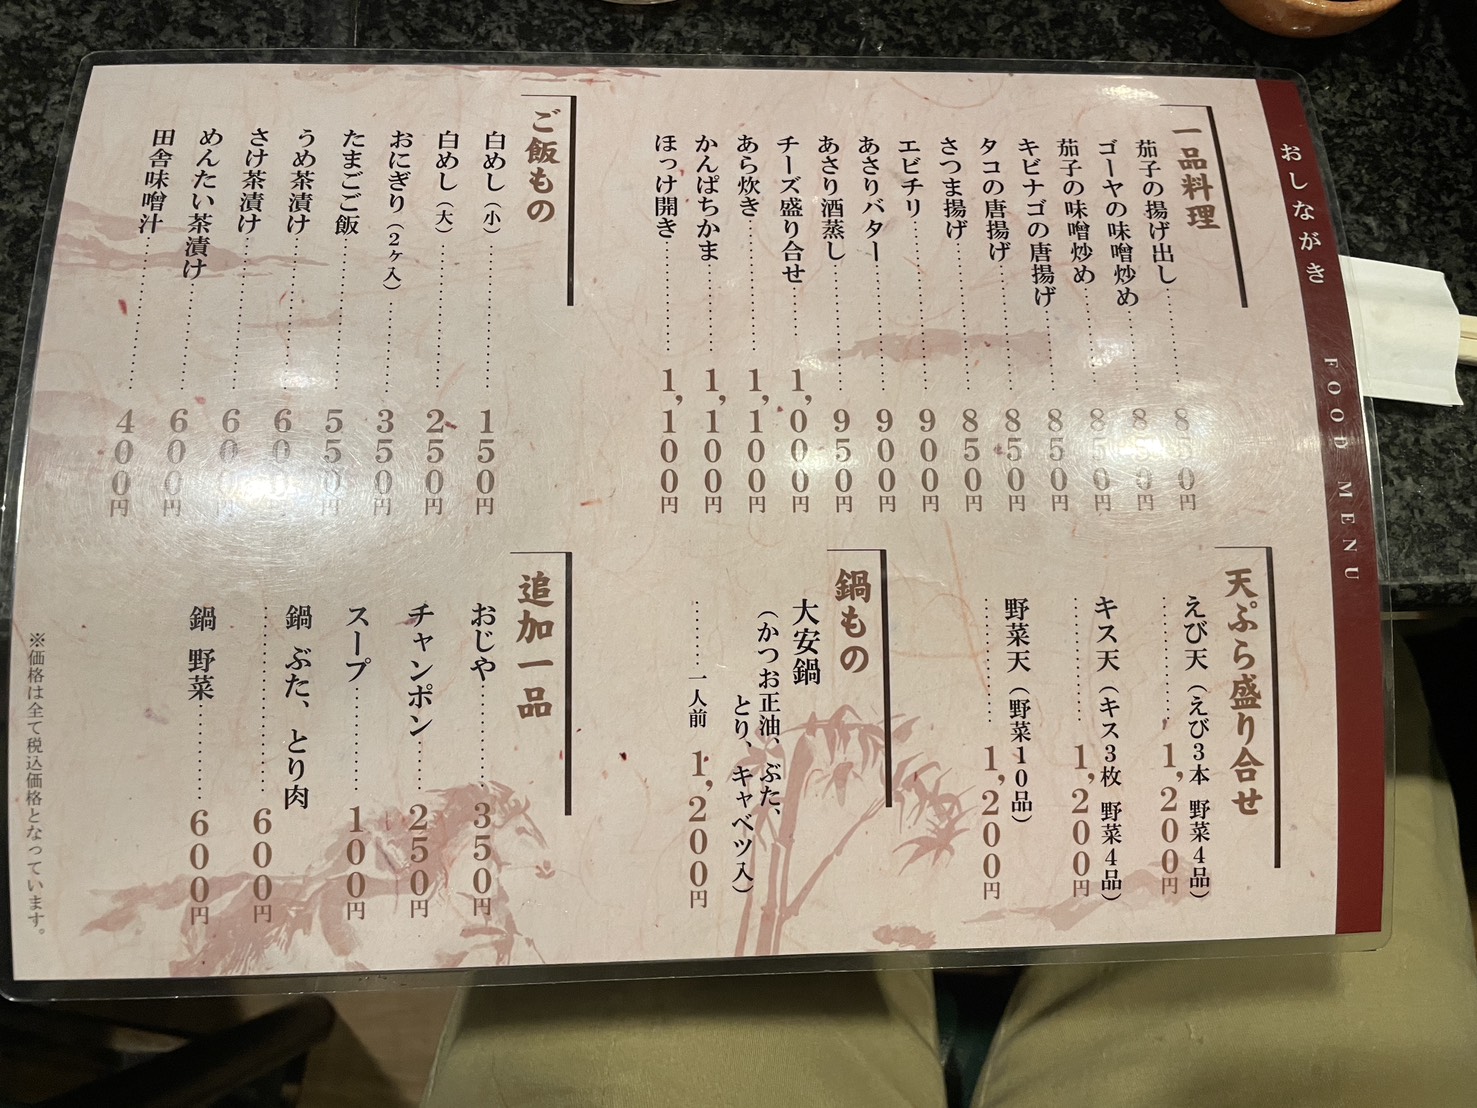 おしながき FOOD MENU
一品料理
茄子の揚げ出し 850円
ゴーヤの味噌炒め 850円
茄子の味噌炒め 850円
キビナゴの唐揚げ 850円
タコの唐揚げ 850円
さつま揚げ 850円
エビチリ 900円
あさりバター 900円
あさり酒蒸し 950円
チーズ盛り合せ 1,000円
あら炊き 1,100円
かんぱちかま 1,100円
ほっけ開き 1,100円
ご飯もの
白めし（小） 150円
白めし（大） 250円
おにぎり（2ヶ入） 350円
たまごご飯 550円
うめ茶漬け 600円
さけ茶漬け 600円
めんたい茶漬け 600円
田舎味噌汁 400円
天ぷら盛り合せ
えび天（えび3本 野菜4品）
1,200円
キス天（キス3枚 野菜4品）
1,200円
野菜天（野菜10品）
1,200円
鍋もの
大安鍋
（かつお正油、ぶた、
とり、キャベツ入）
一人前 1,200円
追加一品
おじや 350円
チャンポン 250円
スープ 100円
鍋 ぶた、とり肉
600円
鍋 野菜 600円
※価格は全て税込価格となっています。